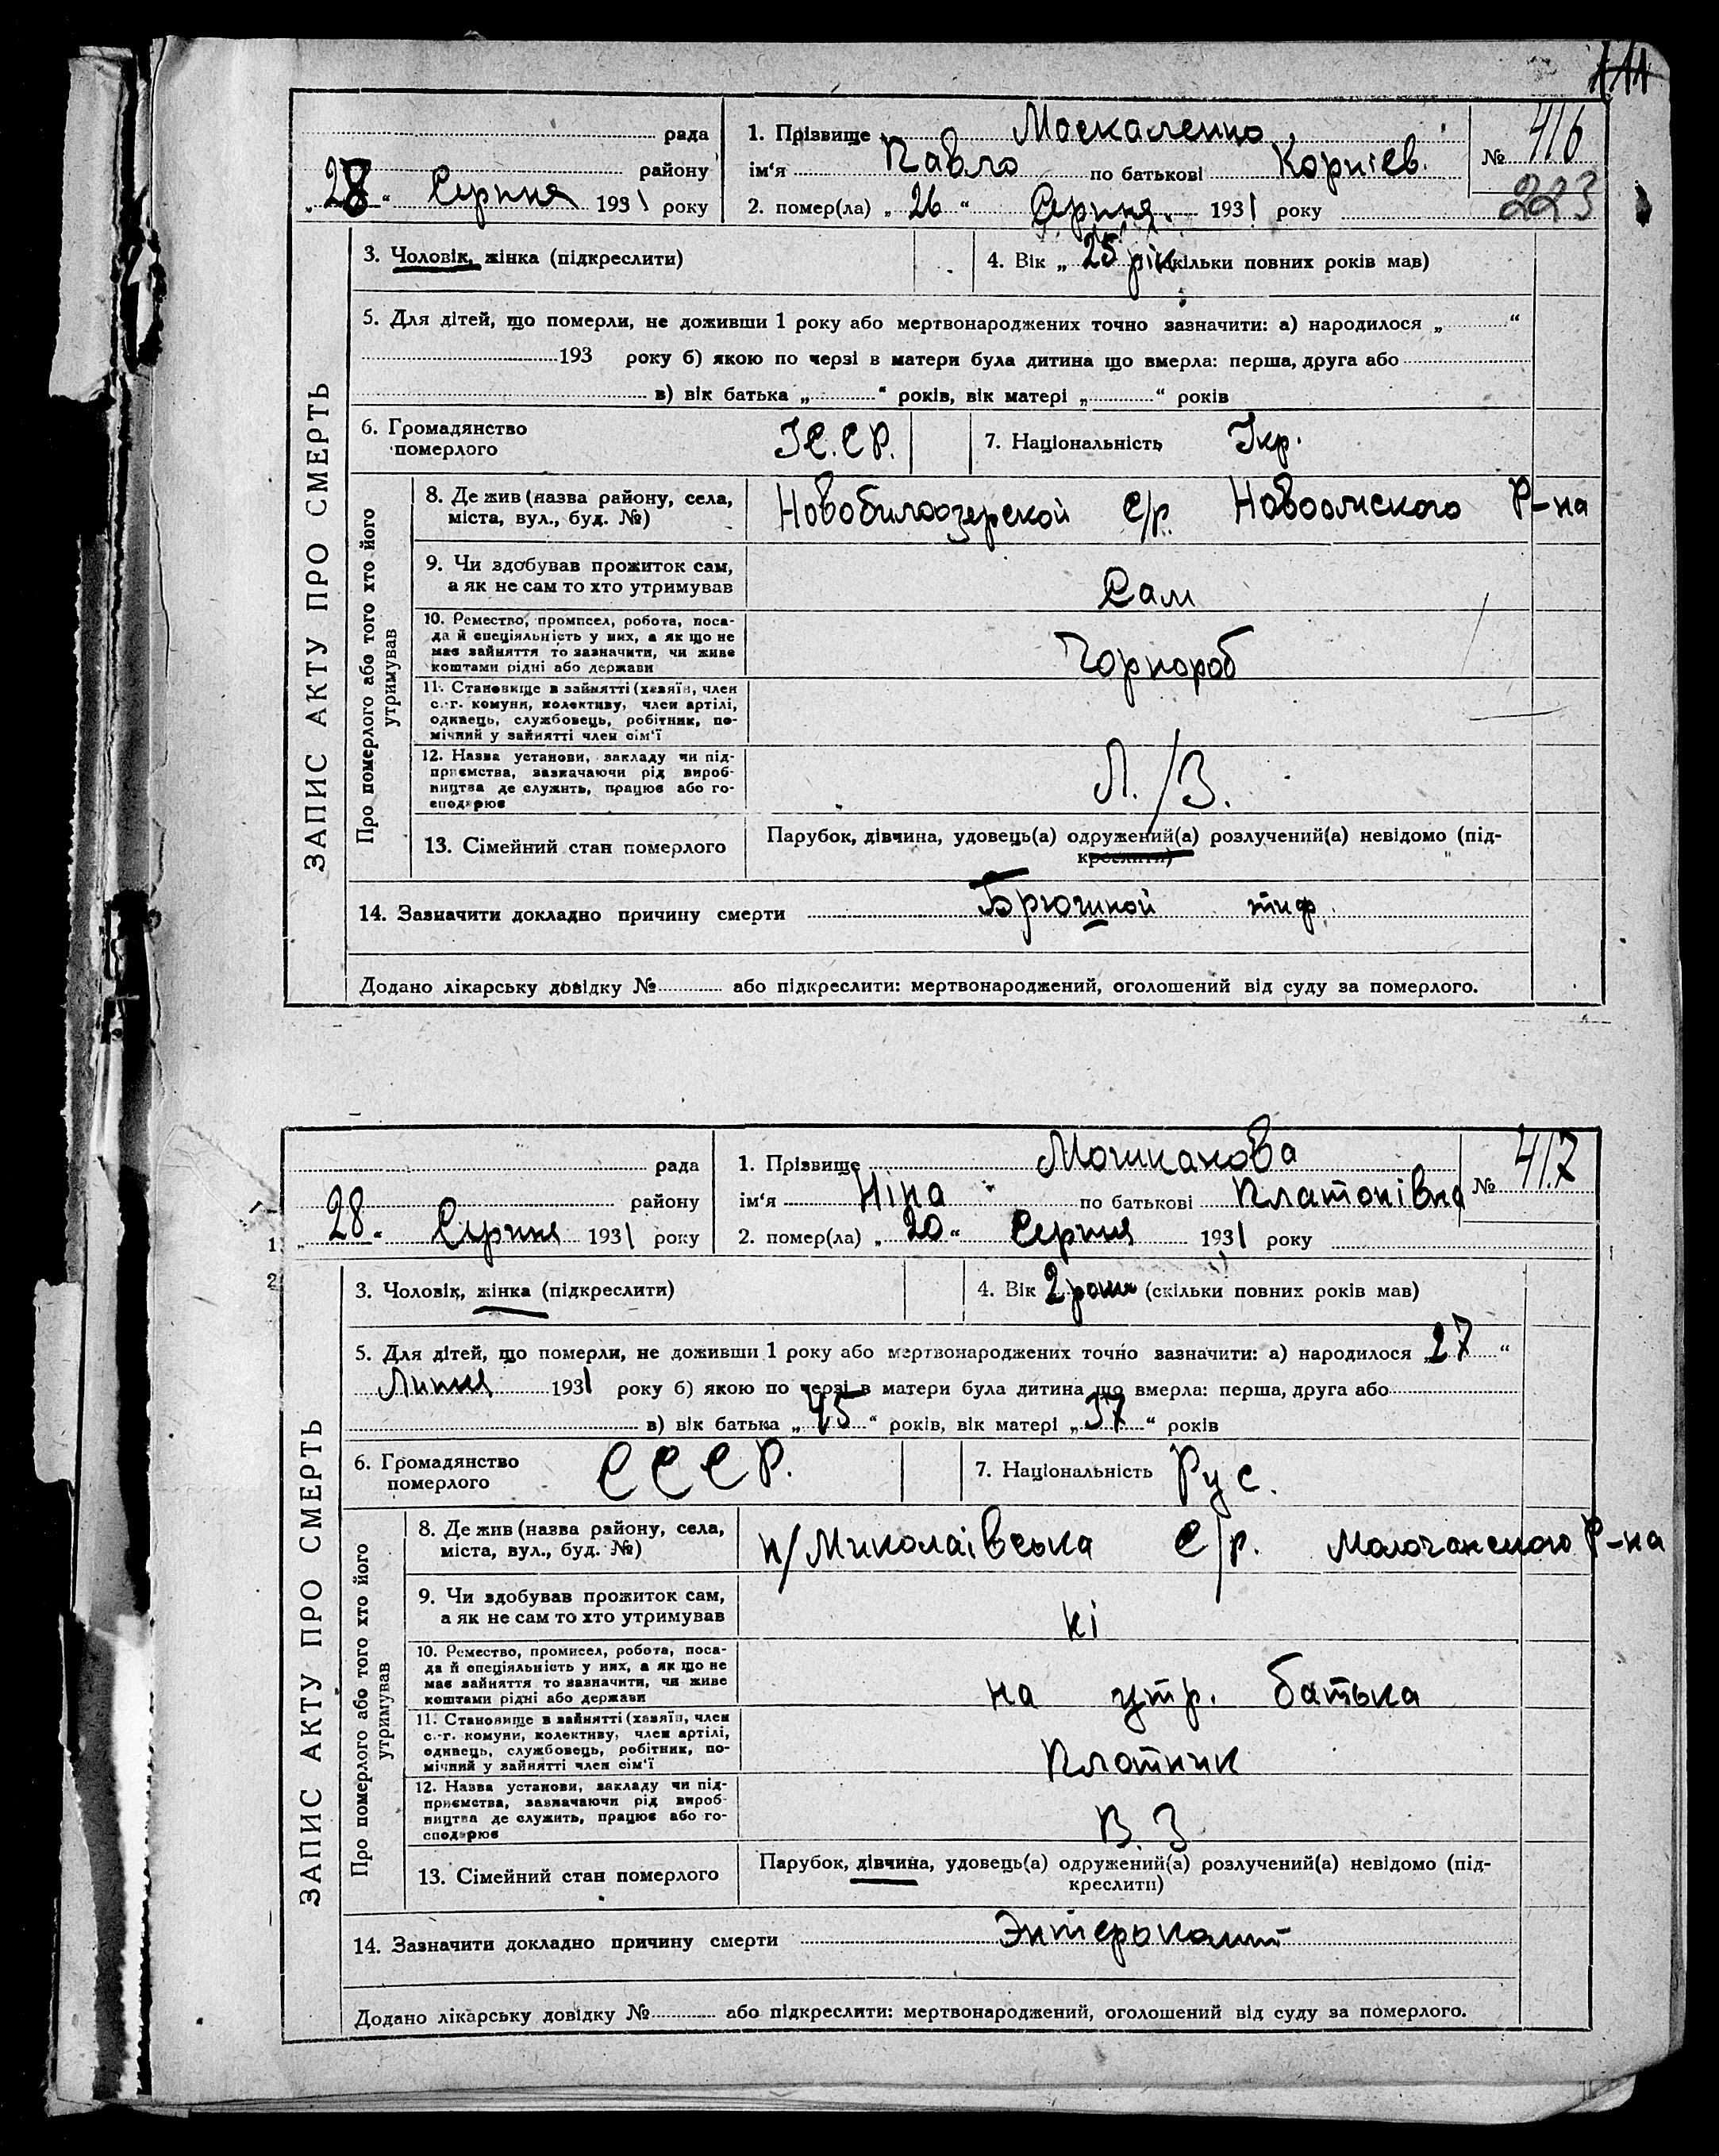 416
рада 1. Прізвище Москаленко №
району ім‘я Павло по батькові Корніев.
„28“ Серпня 1931 року 2. помер(ла) „26“ Серпня 1931 року
223
3. Чоловік, жінка (підкреслити) 4. Вік „25 рік (скільки повних років мав)
5. Для дітей, що померли, не доживши 1 року або мертвонароджених точно зазначити: а) народилося „ “
193 року б) якою по черзі в матери була дитина що вмерла: перша, друга або
в) вік батька „ “ років, вік матері „ “ років
6. Громадянство
померлого
7. Національність Укр.
ЗАПИС АКТУ ПРО СМЕРТЬ
Про померлого або того хто його
утримував
8. Де жив (назва району, села,
міста, вул., буд. №)
Новобилоозерской С/р. Р-на
9. Чи здобував прожиток сам,
а як не сам то хто утримував
Сам
10. Ремество, промисел, робота, поса-
да й спеціяльність у них, а як що не
має зайняття то зазначити, чи живе
коштами рідні або держави
Чорнороб
11. Становище в зайнятті (хазяїн, член
с.-г. комуни, колективу, член артілі,
одинець, службовець, робітник, по-
мічний у зайнятті член сім‘ї
12. Назва установи, закладу чи під-
приємства, зазначаючи рід вироб-
ництва де служить, працює або го-
сподарює
Л./З.
13. Сімейний стан померлого
Парубок, дівчина, удовець(а) одружений(а) розлучений(а) невідомо (під-
креслити)
14. Зазначити докладно причину смерти Брюшной тиф.
Додано лікарську довідку № або підкреслити: мертвонароджений, оголошений від суду за померлого.
рада 1. Прізвище Мошканова № 417
району ім‘я Ніна по батькові Платонівна
„28“ Серпня 1931 року 2. помер(ла) „20“ Серпня 1931 року
3. Чоловік, жінка (підкреслити) 4. Вік 2 роки (скільки повних років мав)
5. Для дітей, що померли, не доживши 1 року або мертвонароджених точно зазначити: а) народилося „27“
Липня 1931 року б) якою по черзі в матери була дитина що вмерла: перша, друга або
в) вік батька „45“ років, вік матері „37“ років
6. Громадянство
померлого
СССР.
7. Національність Рус.
ЗАПИС АКТУ ПРО СМЕРТЬ
Про померлого або того хто його
утримував
8. Де жив (назва району, села,
міста, вул., буд. №)
н/Миколаівська С/р. Молочанского Р-на
9. Чи здобував прожиток сам,
а як не сам то хто утримував
ні
10. Ремество, промисел, робота, поса-
да й спеціяльність у них, а як що не
має зайняття то зазначити, чи живе
коштами рідні або держави
на утр. батька
11. Становище в зайнятті (хазяїн, член
с.-г. комуни, колективу, член артілі,
одинець, службовець, робітник, по-
мічний у зайнятті член сім‘ї
Плотник
12. Назва установи, закладу чи під-
приємства, зазначаючи рід вироб-
ництва де служить, працює або го-
сподарює
В. З
13. Сімейний стан померлого
Парубок, дівчина, удовець(а) одружений(а) розлучений(а) невідомо (під-
креслити)
14. Зазначити докладно причину смерти Энтероколит
Додано лікарську довідку № або підкреслити: мертвонароджений, оголошений від суду за померлого.